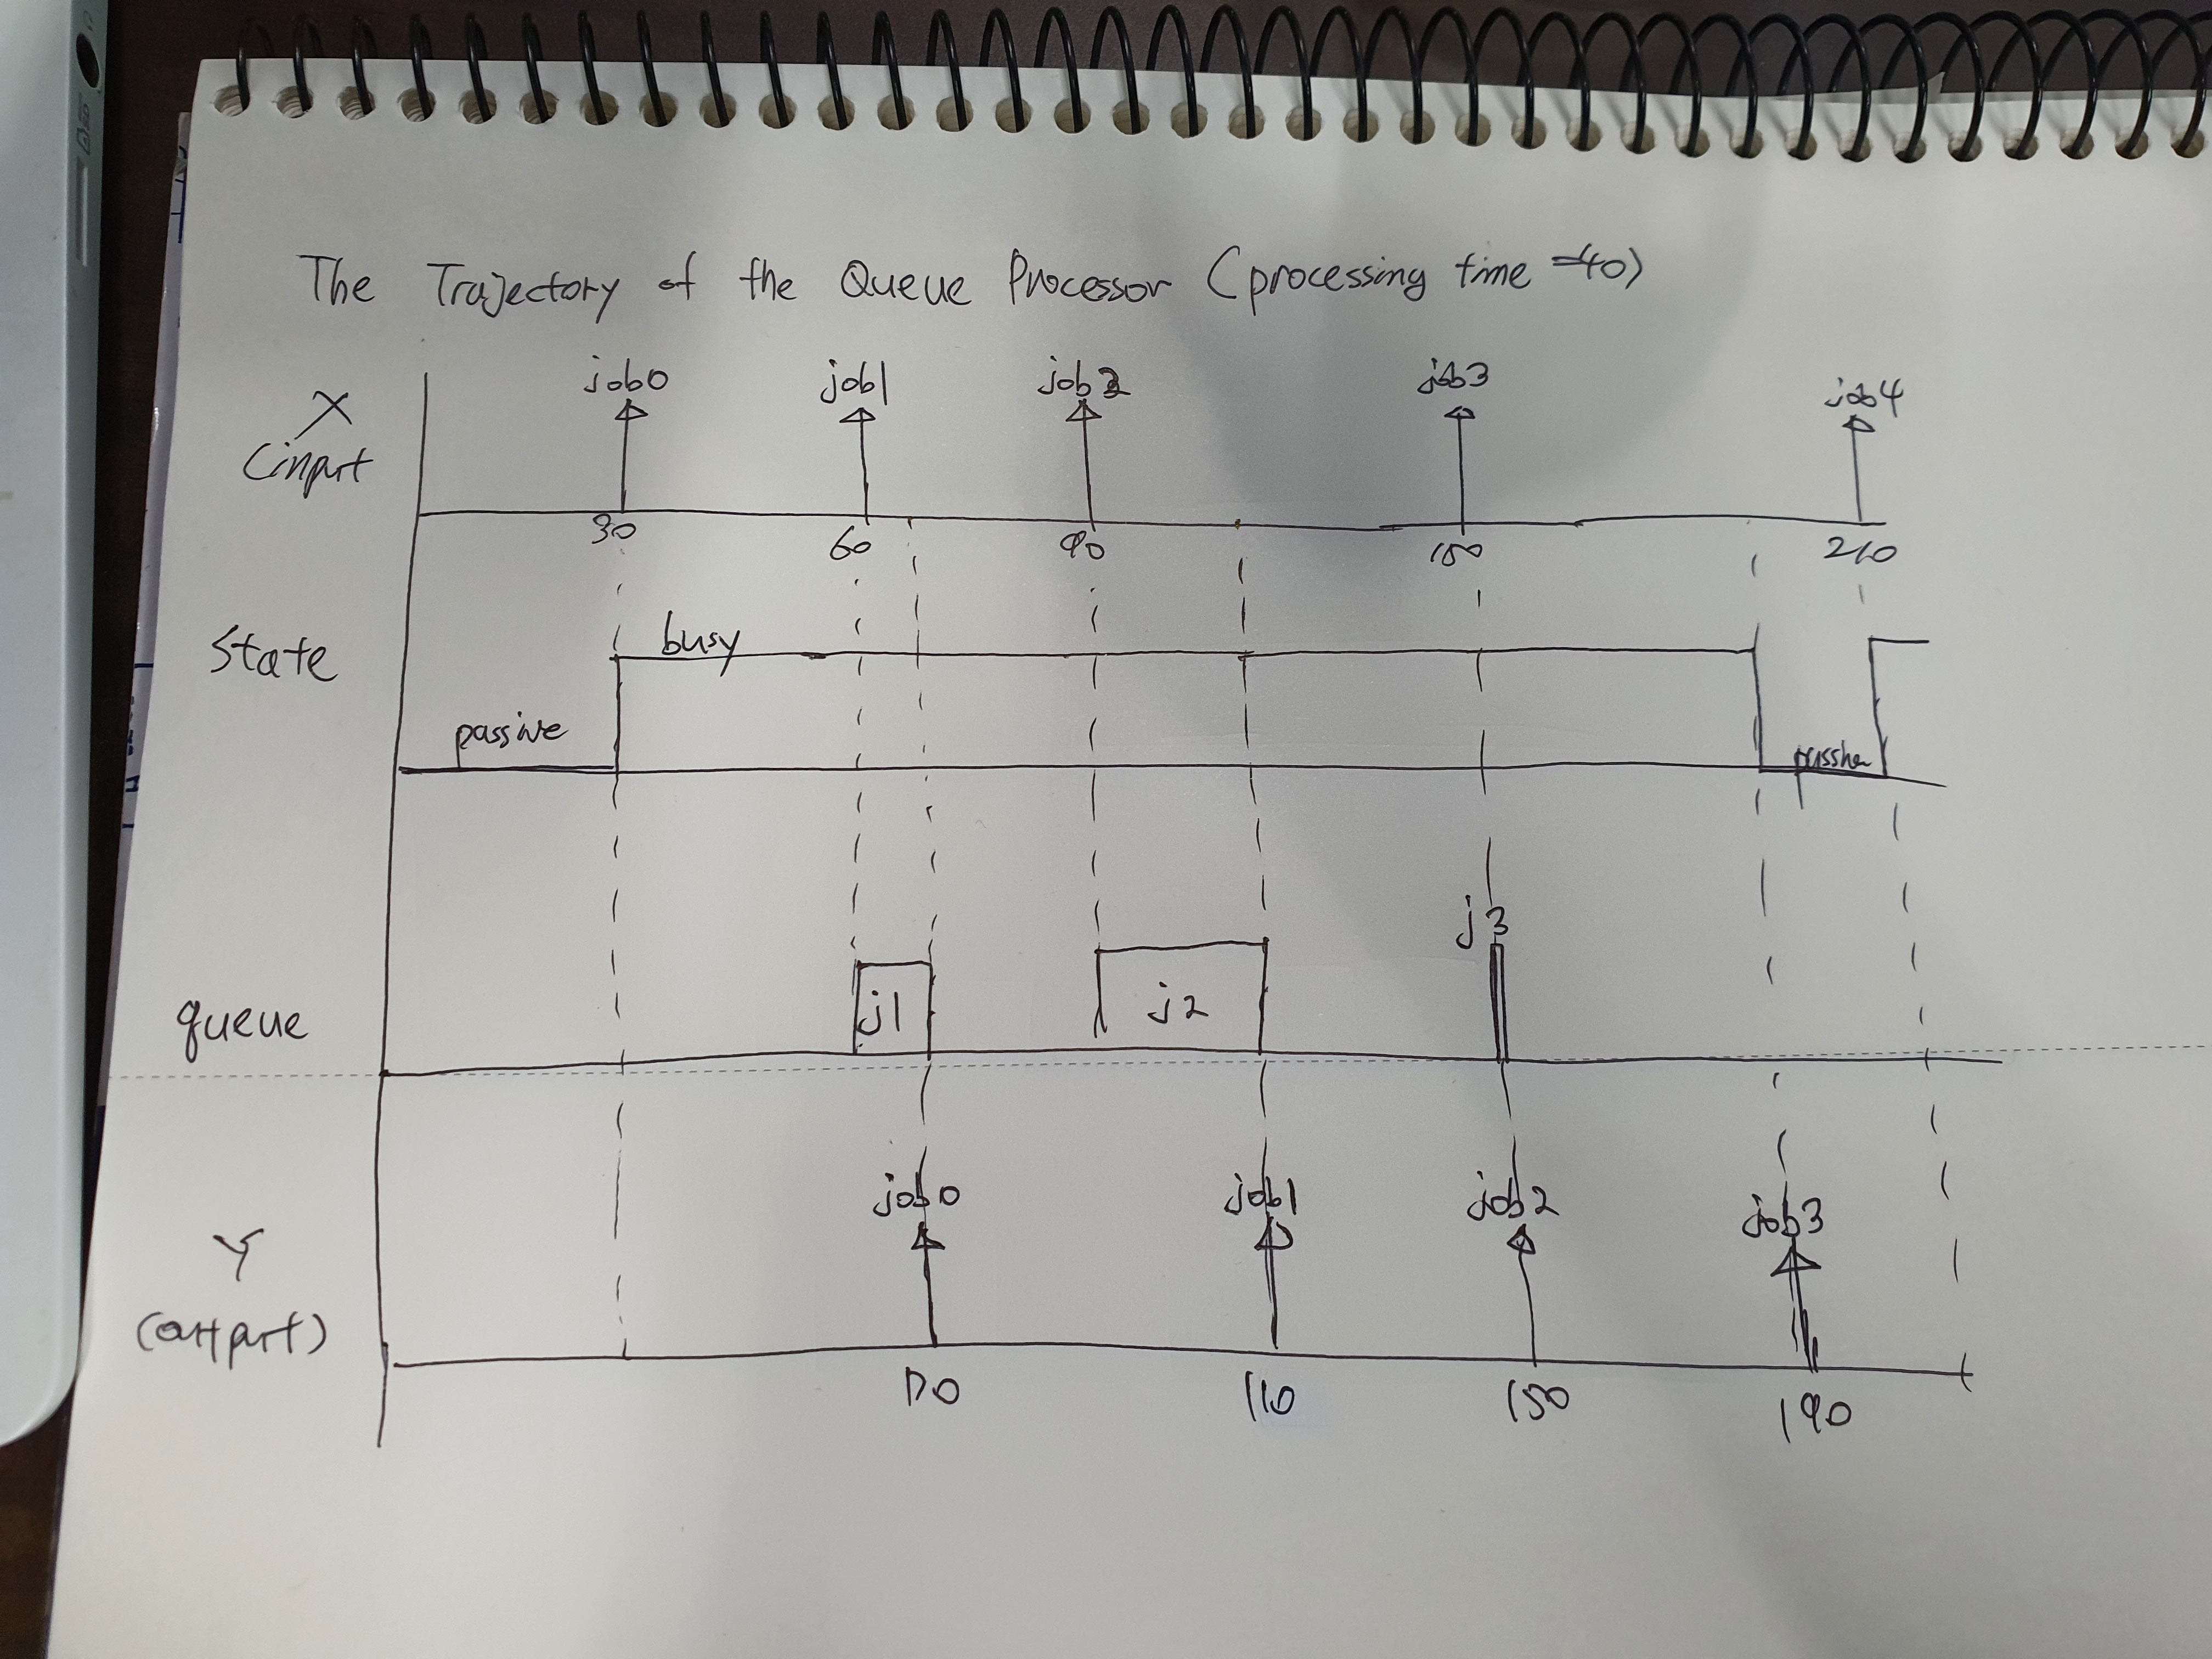 The Trajectory of the Queue Processor (processing time =40)
job0 job1 job2 job3 job4
X
(input
30 60 90 150 210
State
busy
passive
passive
j3
queue
j1 j2
job0 job1 job2 job3
Y
(output)
70 110 150 190